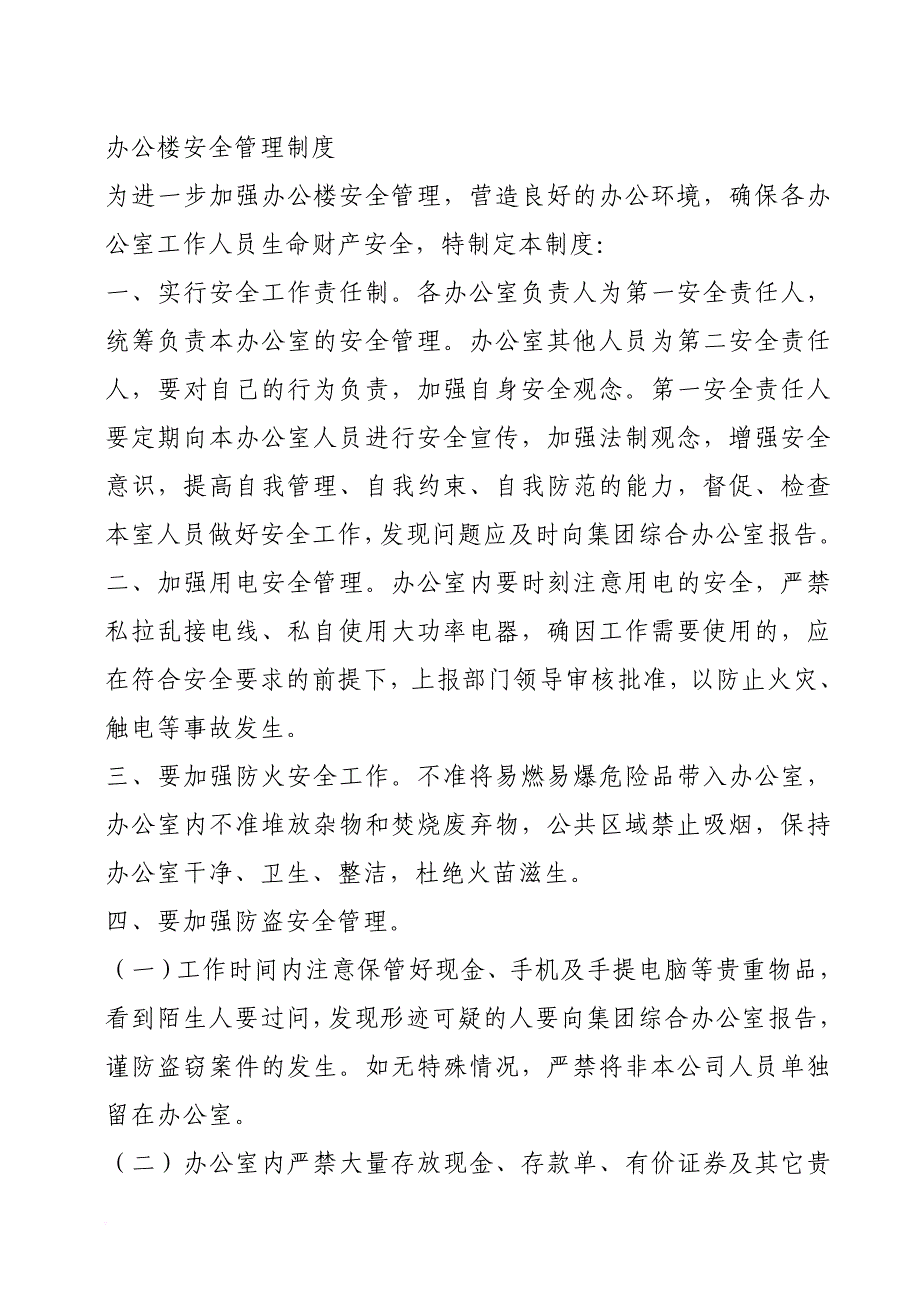 办公楼安全管理制度
为进一步加强办公楼安全管理，营造良好的办公环境，确保各办
公室工作人员生命财产安全，特制定本制度：
一、实行安全工作责任制。各办公室负责人为第一安全责任人，
统筹负责本办公室的安全管理。办公室其他人员为第二安全责任
人，要对自己的行为负责，加强自身安全观念。第一安全责任人
要定期向本办公室人员进行安全宣传，加强法制观念，增强安全
意识，提高自我管理、自我约束、自我防范的能力，督促、检查
本室人员做好安全工作，发现问题应及时向集团综合办公室报告。
二、加强用电安全管理。办公室内要时刻注意用电的安全，严禁
私拉乱接电线、私自使用大功率电器，确因工作需要使用的，应
在符合安全要求的前提下，上报部门领导审核批准，以防止火灾、
触电等事故发生。
三、要加强防火安全工作。不准将易燃易爆危险品带入办公室，
办公室内不准堆放杂物和焚烧废弃物，公共区域禁止吸烟，保持
办公室干净、卫生、整洁，杜绝火苗滋生。
四、要加强防盗安全管理。
（一）工作时间内注意保管好现金、手机及手提电脑等贵重物品，
看到陌生人要过问，发现形迹可疑的人要向集团综合办公室报告，
谨防盗窃案件的发生。如无特殊情况，严禁将非本公司人员单独
留在办公室。
（二）办公室内严禁大量存放现金、存款单、有价证券及其它贵